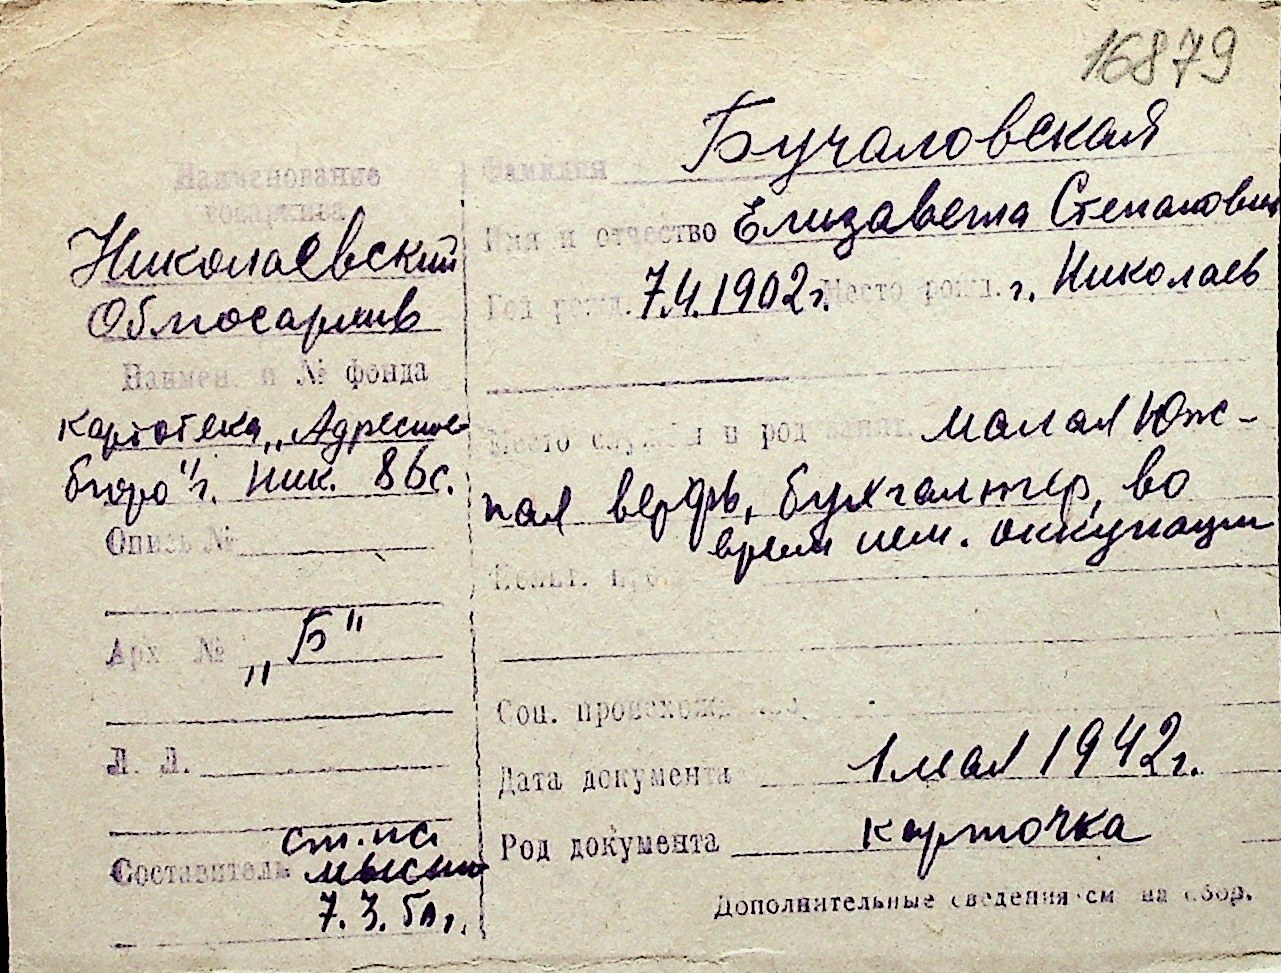 16879
Наименование
госархива
Николаевский
Облгосархив
Наимен. и № фонда
картотека „Адресное
бюро" г. Ник. 86с.
Опись №
Арх №
„Б"
Л. Л.
Составитель
7.3.50г.
Фамилия Бучаловская
Имя и отчество Елизавета Степановна
Год рожд. 7.4.1902г. Место рожд. г. Николаев
Место службы и род занят. малая Юж-
ная верфь, бухгалтер, во
время нем. оккупации
Соц. происхождение
Дата документа 1 мая 1942г.
Род документа карточка
Дополнительные сведения см на обор.